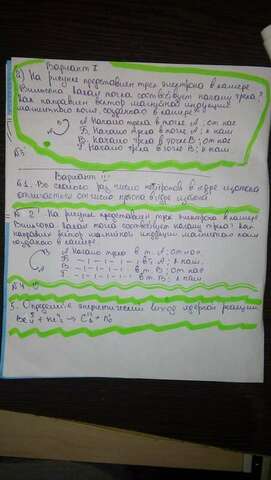 Вариант I
2) На рисунке представлен трек электрона в камере
Вильсона. Какая точка соответствует началу трека?
Как направлен вектор магнитной индукции
магнитного поля, созданного в камере?
А Начало трека в точке А, от нас
Б. Начало трека в точке А, к нам
В. Начало трека в точке В; от нас
Г Начало трека в точке В; к нам.
Вариант
61. Во сколько раз число нейтронов в ядре изотопа
отличается от числа
№ 2 На рисунке представлен трек электрона в камере
Вильсона. Какая точка соответствует началу трека? Как
направлен вектор магнитной индукции магнитного поля
созданного в камере
А Начало трека в т. А; от нас
Б -ı-ı-ı-ı- в т. А; к нам.
В -ı-ı-ı-ı- в т. В; от нас
Г -ı-ı-ı-ı- в т. В; к нам.
5. Определите энергетический выход ядерной реакции